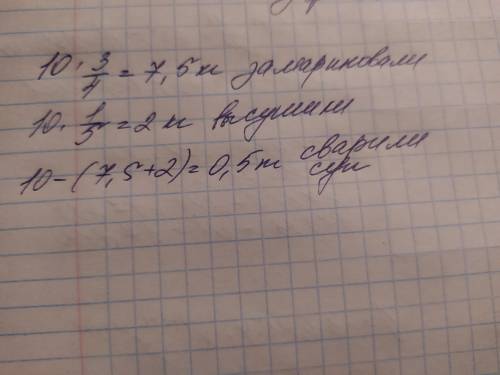 10 · 3/4 = 7,5 кг замариновали
10 · 1/5 = 2 кг высушили
10 - (7,5 + 2) = 0,5 кг сварили
суп